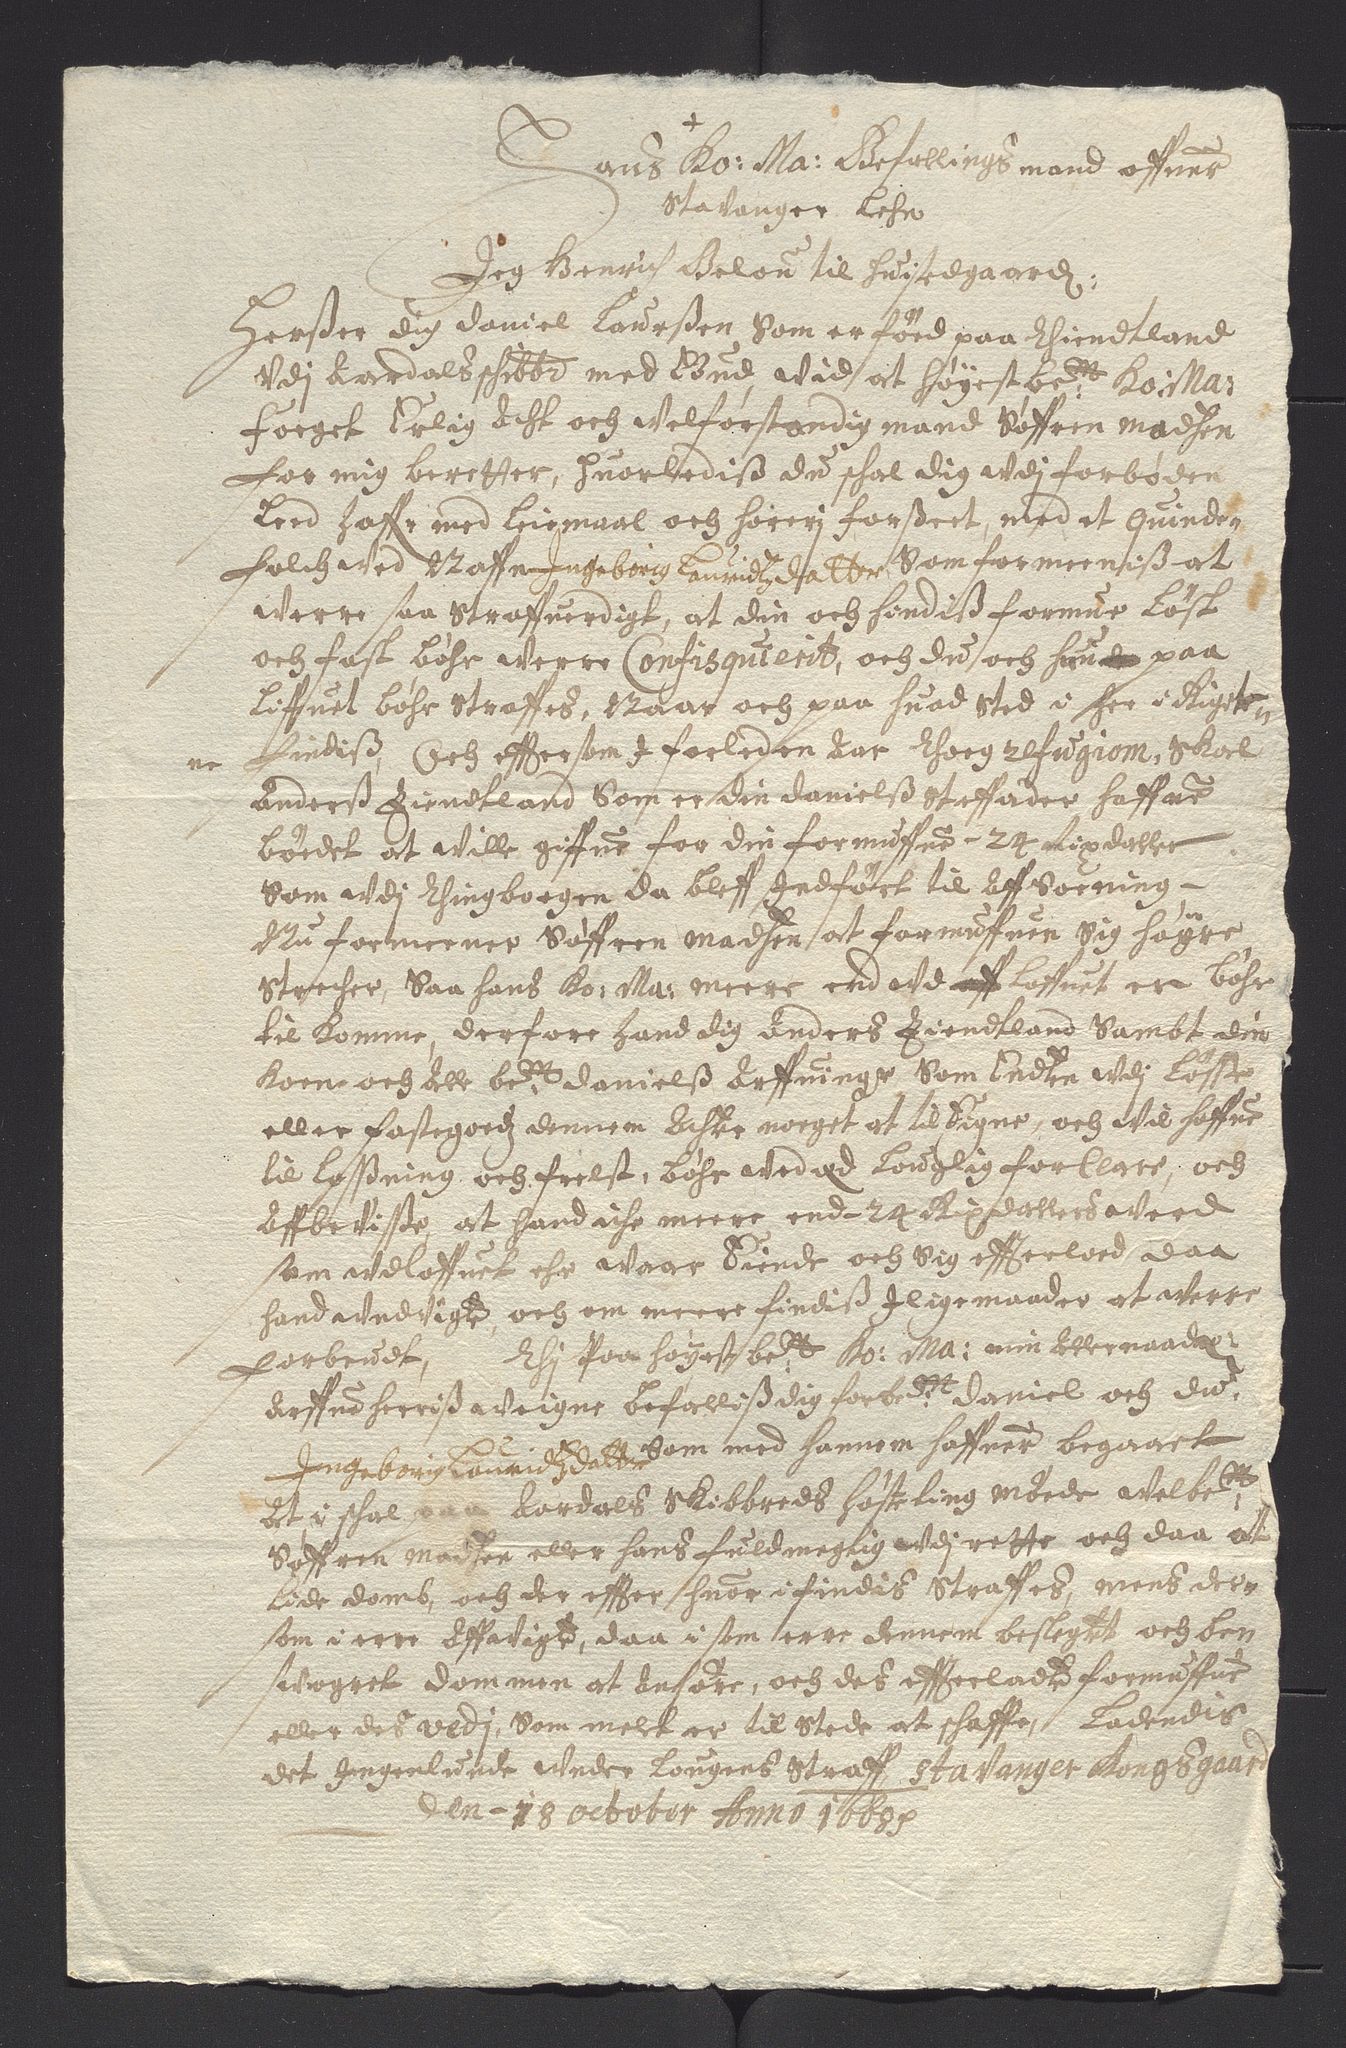 Hans Ko: Ma: Befallings mand offuer
Stavanger Lehn
Jeg Henrich Belou til huistedgaard:
Herßer dig Daniel Laurßen Som er föed paa Thiendtland
Vdj Aardals schibbr med Bud, vid at höyestbete: Ko: Ma:
foeget Erlig Acht och velforstandig mand Söffren Madßen
for mig beretter, huorlediß du schal dig vdj forböden
Leed haffe med Leiermaal och horerj forßeet, med et Quinde
folch ved Naffn Ingeborig Lauridtzdatter Som formeeniß at
verre saa straffuerdigt, at din och hendiß formue Löst
och fast böhr verre Confisquerit, och du och hun paa
Liffuet böhr straffes, Naar och paa huad sted i her i Rigete
ne findiß, Och effter som I forleden Aar thoeg refugiom, Skoel
Anderß Tiendtland Som er din Danielß steffader haffue
böedet at ville giffue for din formuffue 24 rixdaller
Som vdj thingboegen da bleff Indfört til Aff Soening
Nu formeener Söffren Madßen at formuffuen sig höyre
strecher, Saa hans Ko: Ma: meere end vd loffuet er böhr
til komme, derfore hand dig Anders Tiendtland Sambt din
Kone och Alle bete: Danielß Arffuinge, Som Enten vdj Lösse
eller fastegoedtz dennem Achte noeget at til Eigne, och vil haffue
til Lößning och frelst, böhr ved æd Louglig forClare, och
Affbeviße, at hand iche meere end 24 Rixdallers verd
som vdloffuet ehr vaar Eiende och sig effterloed daa
hand vndvigte, och om meere findiß Iligemaader at verre
forbrudt, Thj Paa höyestbete: Ko: Ma: min Allernaadigs:
Arffue herriß veigne befalliß dig forbete: Daniel och du
Ingeborig Lauridtzdatter Som med hannem haffuer begaaet
At i schal paa Aardals Skibbreds höste ting möede velbete:
Söffren Madßen eller hans fuldmegtig vdj rette och daa at
lide domb, och der effter huor i findis straffes, mens der
som i erre Affvigte, daa i som erre dennem beslegtet och be
svogret dommen at Anhöre, och des effterladte formuffue
eller des verdj, Som melt er til stede at schaffe, Ladendis
det Ingenlunde vnder Lougens straff, Stavanger Kongsgaard
den 18 october Anno 1668